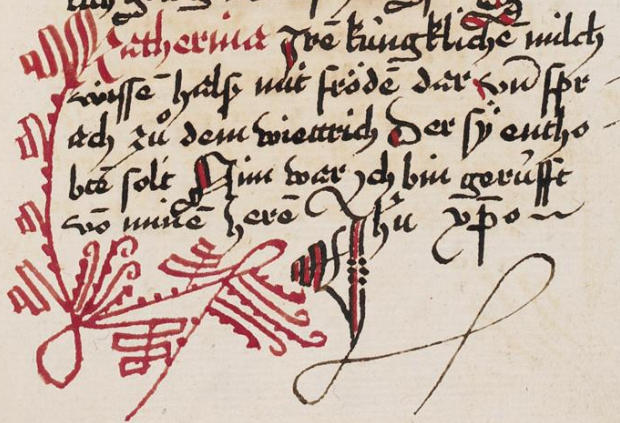 Katherina Jre kúngklichē milch
wissē hals mit frödē dar vn̄ spr
ach zů dem wiettrich Der sÿ entho
btē solt Nim war jch bin gerùfft
vō minē herē Jhū xp̄o